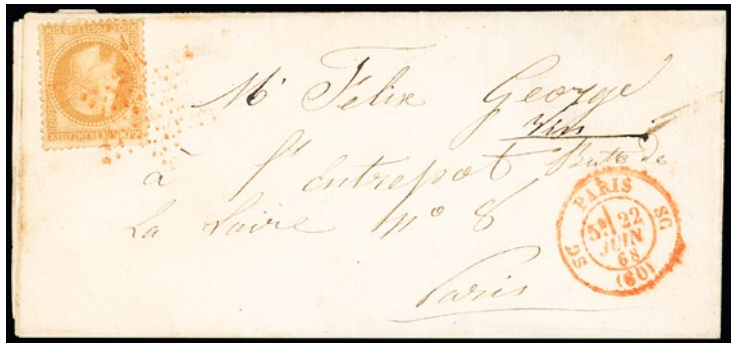 Mr Félix George
Vin
à l'entrepot Butte de
La Loire n° 8
Paris
PARIS
SC SC
5E 22
JUIN
68
(60)